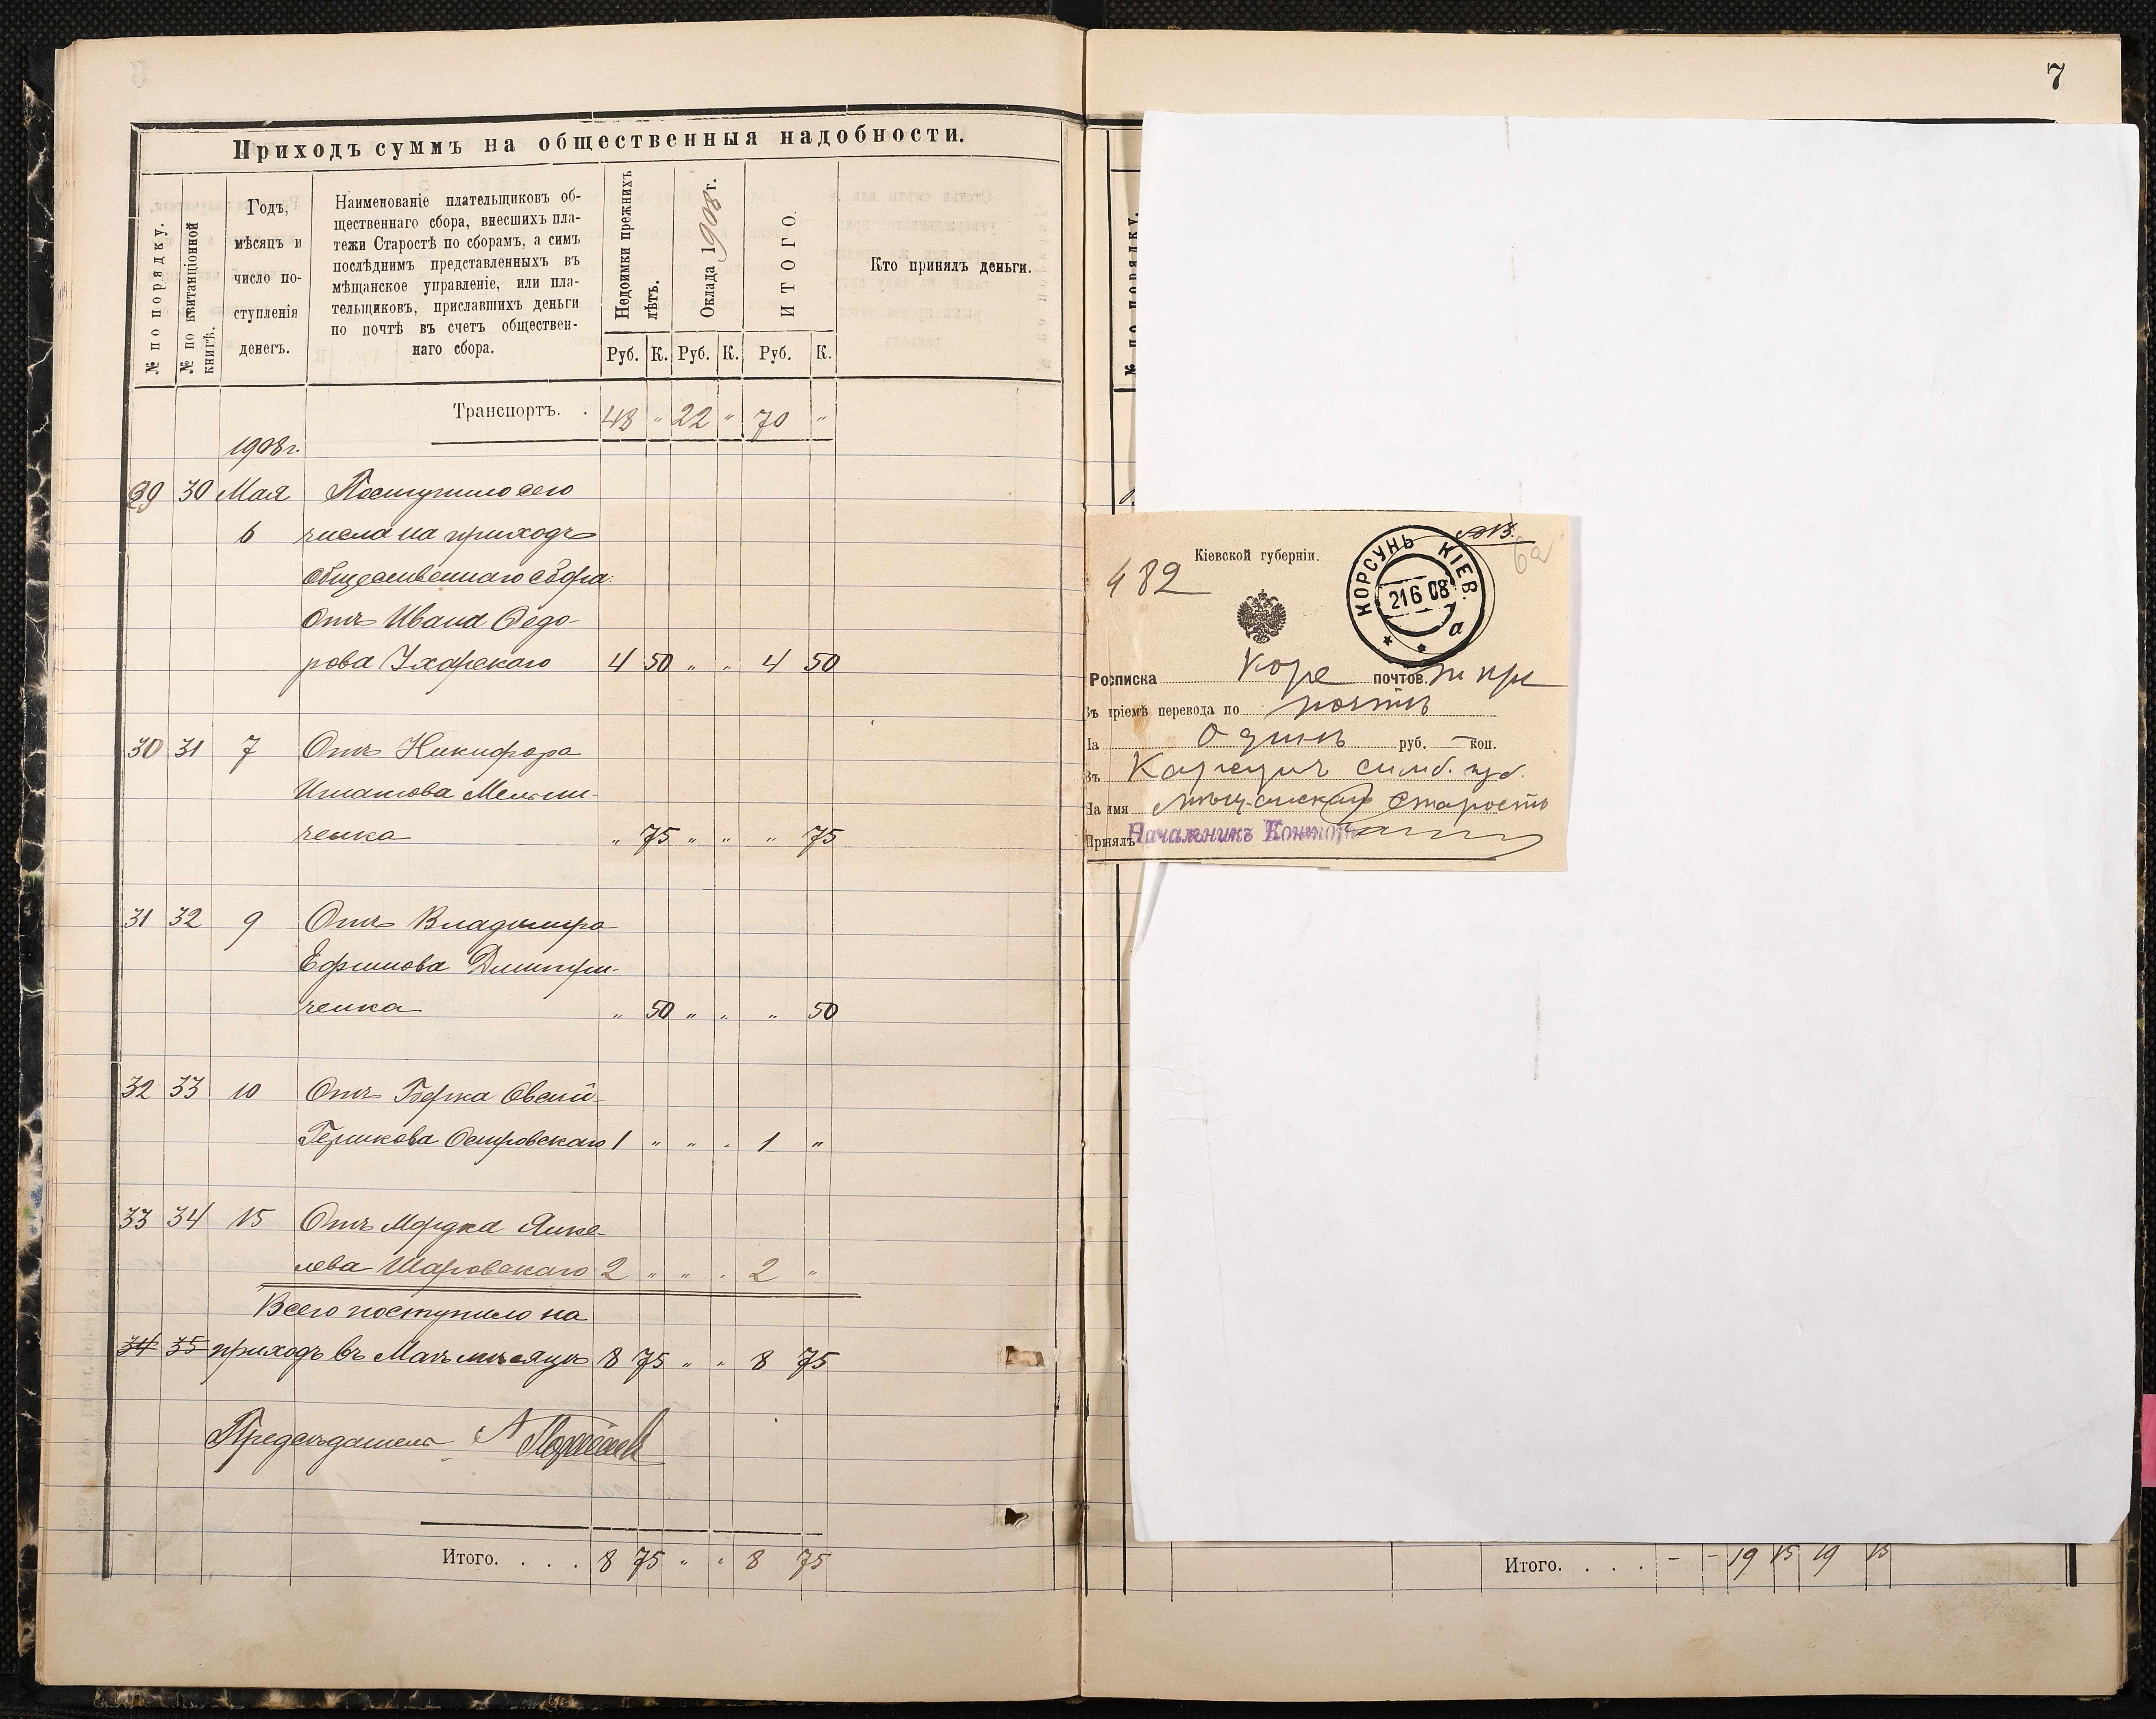 7
Приходъ суммъ на общественныя надобности.
№ по порядку.
№ по квитанціонной книгѣ.
Годъ,
мѣсяцъ и
число по-
ступленія
денегъ.
Наименованіе плательщиковъ об-
щественнаго сбора, внесшихъ пла-
тежи Старостѣ по сборамъ, а симъ
послѣднимъ представленныхъ въ
мѣщанское управленіе, или пла-
тельщиковъ, приславшихъ деньги
по почтѣ въ счетъ обществен-
наго сбора.
Недоимки прежнихъ лѣтъ.
Оклада 1908 г.
ИТОГО.
Кто принялъ деньги.
Руб. К. Руб. К. Руб. К.
Транспортъ. . 48 " 22 " 70 "
1908 г.
29 30 Мая Поступило сего
6 числа на приходъ
общественнаго сбора:
Отъ Ивана Ѳедо-
рова 4 50 " " 4 50
30 31 7 Отъ Никифора
Игнатова Мельни-
ченка " 75 " " " 75
31 32 9 Отъ Владимира
Ефимова Дмитри-
ченка " 50 " " " 50
32 33 10 Отъ Берка Овсій-
Гершкова Островскаго 1 " " " 1 "
33 34 15 Отъ Мордка Янке-
лева Шаровскаго 2 " " " 2 "
Всего поступило на
34 35 приходъ въ Маѣ мѣсяцѣ 8 75 " " 8 75
Предсѣдатель
Итого. . . . 8 75 " " 8 75
№ по порядку.
482
Кіевской губерніи.
КОРСУНЬ КІЕВ.
21 6 08
а
6а
Росписка Корс почтов.
Въ пріемѣ перевода по почтѣ
На Одинъ руб. — коп.
Въ Карсунъ симб. губ.
На имя Мѣщанскаго Старосты
Принялъ Начальникъ Конторы
Итого. . . . - - 19 15 19 15